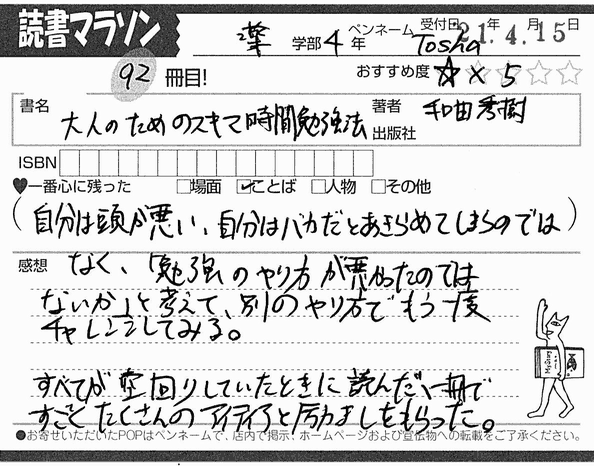 読書マラソン 薬 学部 4 年 ペンネーム Tosha 受付日 21年 4月 15日
92 冊目! おすすめ度 ☆×5
書名 大人のためのスキマ時間勉強法 著者 和田秀樹
出版社
ISBN
♥一番心に残った □場面 ☑ことば □人物 □その他
(自分は頭が悪い、自分はバカだとあきらめてしまうのでは)
感想 なく、「勉強のやり方が悪かったのでは
ないか」と考えて、別のやり方でもう一度
チャレンジしてみる。
すべてが空回りしていたときに読んだ一冊で
すごくたくさんのアイディアと励ましをもらった。
●お寄せいただいたPOPはペンネームで、店内で掲示!ホームページおよび宣伝物への転載をご了承ください。